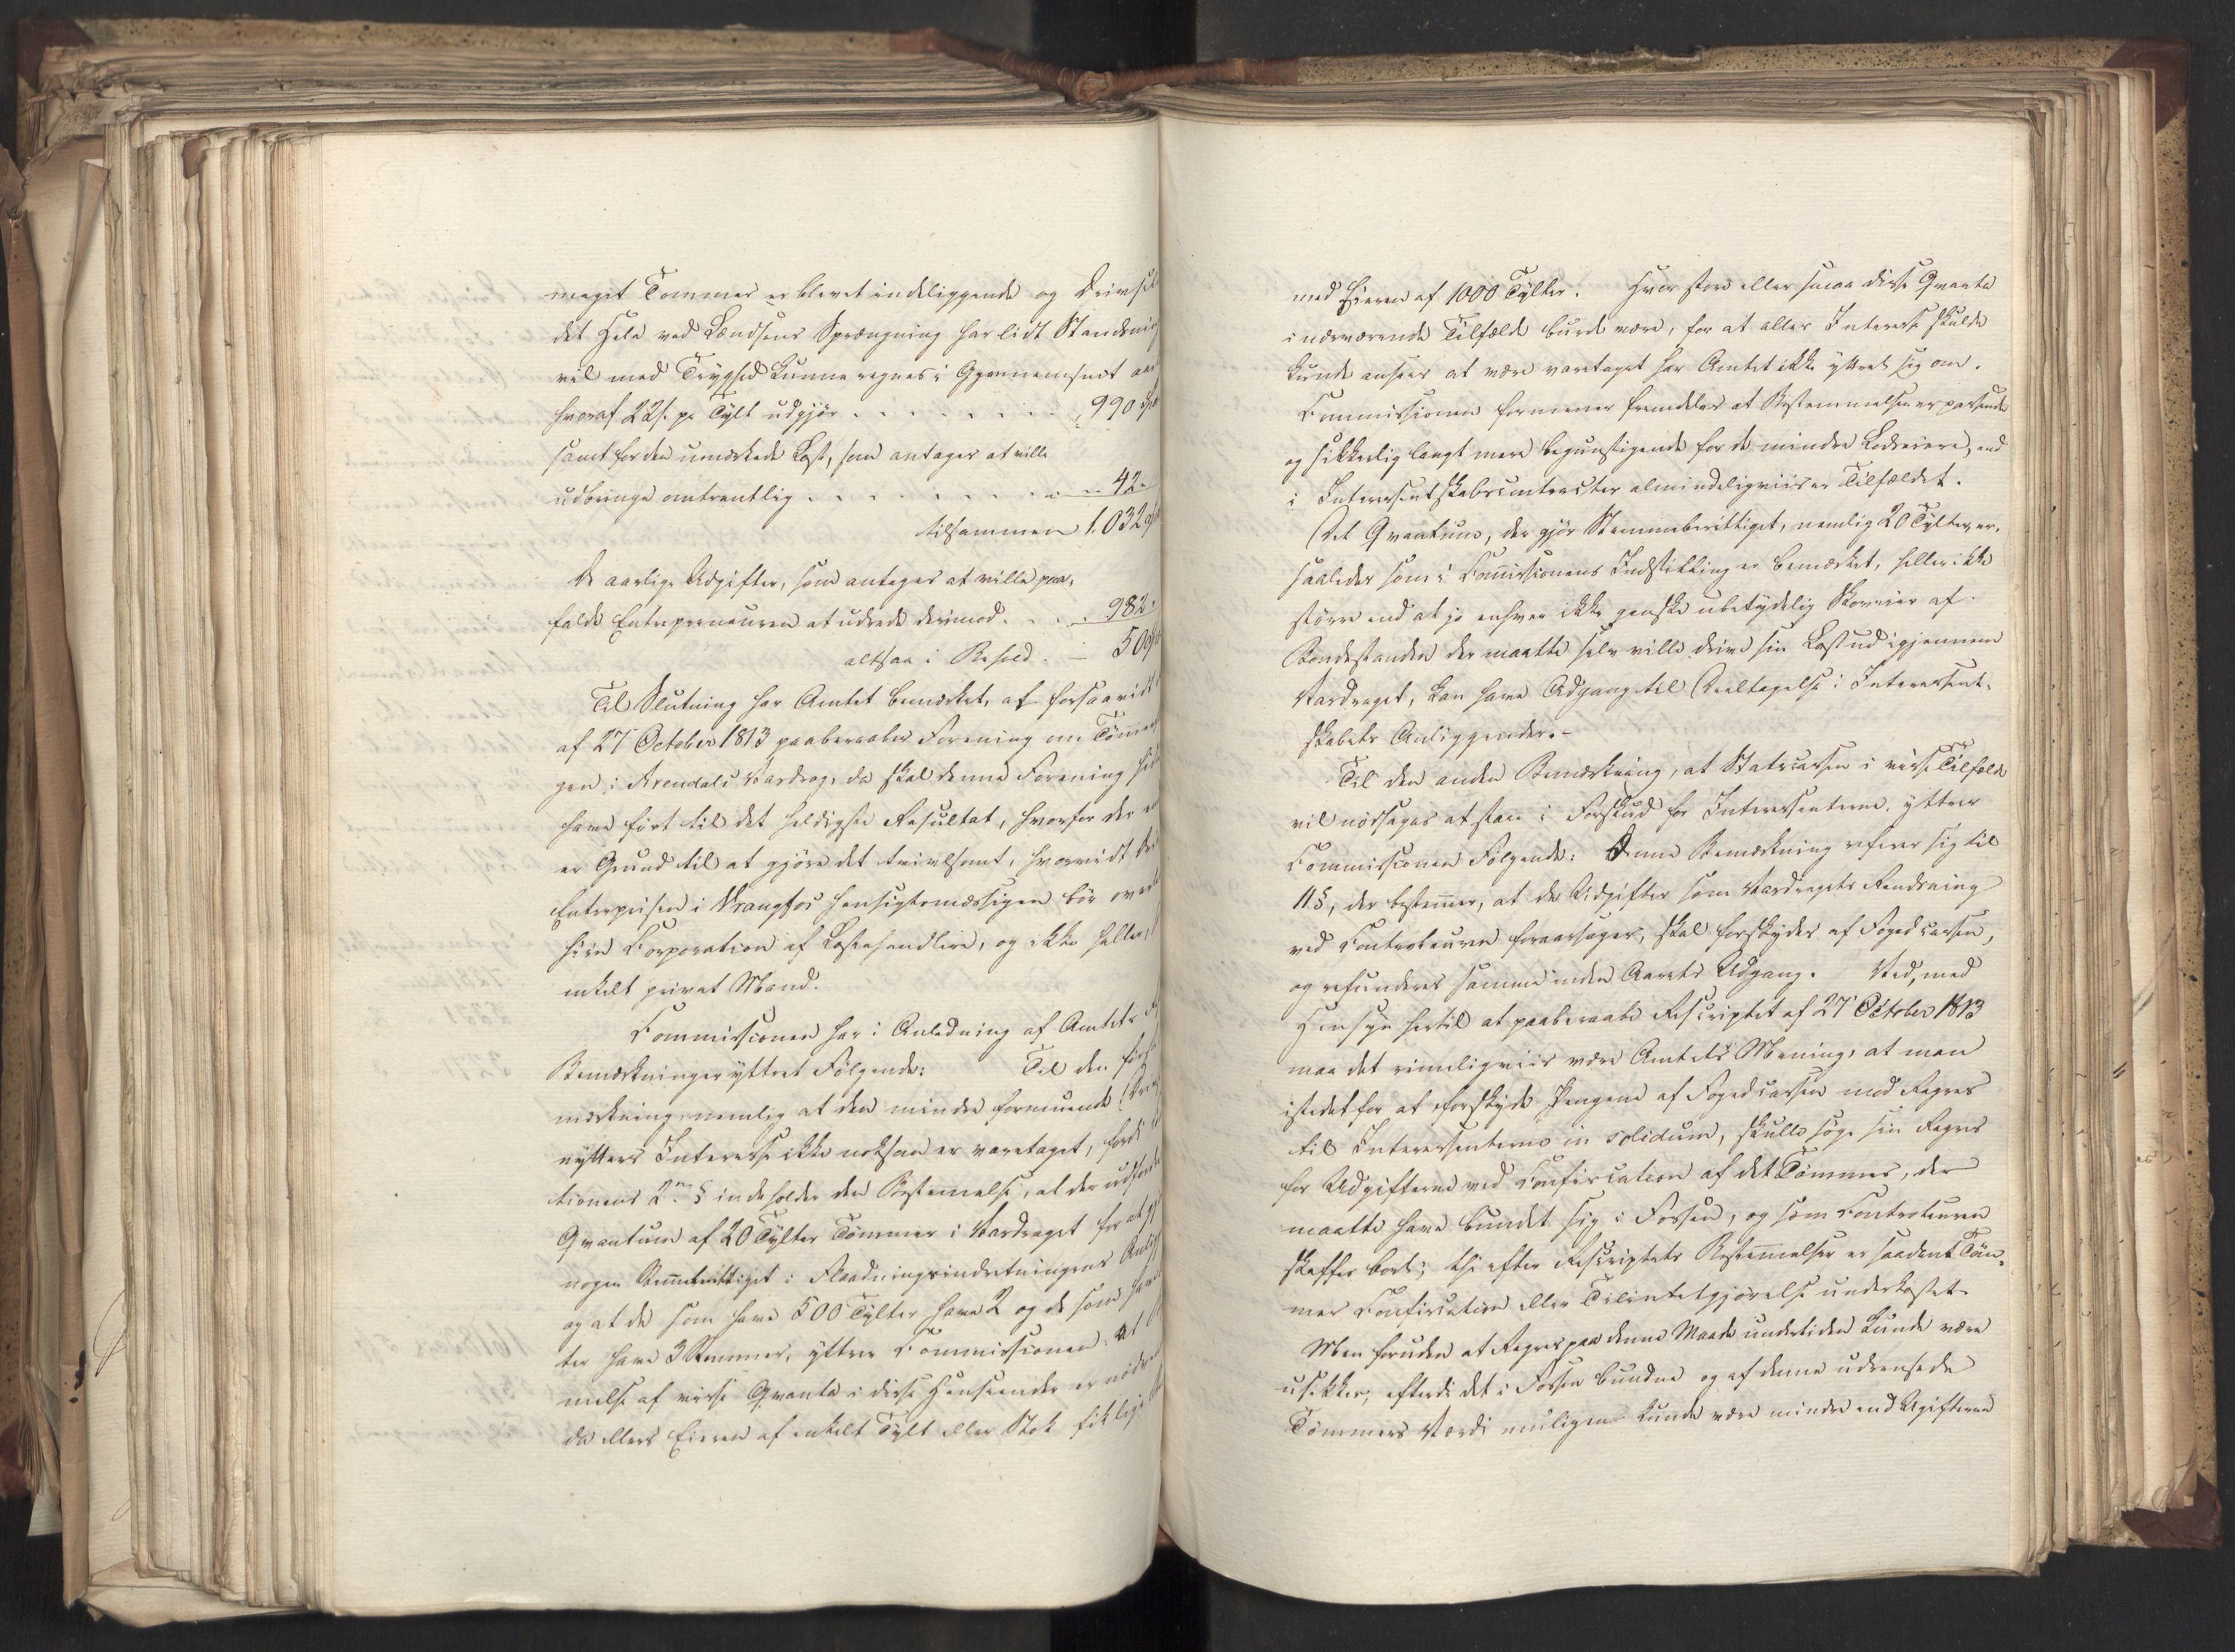 meget Tømmer er blevet indeliggende og Drivsel
det Hele ved Lændsens Sprængning har lidt Standsning
vil med Tryghed kunne regnes i Gjennemsnit aar
hvoraf 22s. pr Tylt udgjør . . . . . . . . 990 Spd
samt for den umærkede Last, som antages at ville
udbringe omtrentlig . . . . . . . . . . 42.
tilsammen 1,032 Spd
De aarlige Udgifter, som antages at ville paa-
falde Entrepreneuren at udrede derimod . . . . 982.
altsaa i Behold . — 50 Spd
Til Slutning har Amtet bemærket, at forsaavidt
af 27 October 1813 paaberaabes Forening om Tømmer
gen i Arendals Vasdrag, da skal denne Forening
have ført til det heldigste Resultat, hvorfor der
er Grund til at gjøre det tvivlsomt, hvorvidt
Entreprisen i Vrangfos hensigtsmæssigen bør over
hiin Corporation af Lasthandlere, og ikke heller
enkelt privat Mand.
Commissionen har i Anledning af Amtets
Bemærkninger yttret Følgende: Til den først
mærkning, nemlig at den mindre formuende
nytters Interesse ikke noksom er varetaget, fordi
tionens 2n § indeholder den Bestemmelse, at der udfordres
Qvantum af 20 Tylter Tømmer i Vasdraget for at gj
nogen Stemmeberettiget i Flødningsindretningens Anligg
og at de som have 500 Tylter have 2 og de som have
ter have 3 Stemmer, yttrer Commissionen: at
melse af visse Qvanta i disse Henseender er nødven
da ellers Eieren af enkelt Tylt eller Stok fik lige
med Eieren af 1000 Tylter. Hvor store eller smaa disse Qvanta
i nærværende Tilfælde burde være, for at alles Interesse skulde
kunde ansees at være varetaget har Amtet ikke yttret sig om.
Commissionen formener fremdeles at Bestemmelsen er passende
og sikkerlig langt mere begunstigende for de mindre Lodseiere, end
i Interessentskabscontracter almindeligviis er Tilfældet.
Det Qvantum, der gjør Stemmeberettiget, nemlig 20 Tylter, er,
saaledes som i Com̅issionens Indstilling er bemærket, heller ikke
større end at jo enhver ikke ganske ubetydelig Skoveier af
Bondestanden der maatte selv ville drive sin Last ud igjennem
Vasdraget, kan have Adgang til Deeltagelse i Interessent-
skabets Anliggender.–
Til den anden Bemærkning, at Statscassen i visse Tilfælde
vil nødsages at staa i Forskud for Interessenterne, yttrer
Commissionen Følgende: Denne Bemærkning referer sig til
11 §, der bestem̅er, at de Udgifter som Vasdragets Rendsning
ved Controleuren foraarsager, skal forskydes af Fogedcassen,
og refunderes samme inden Aarets Udgang. Ved, med
Hensyn hertil at paaberaabe Rescriptet af 27 October 1813
maa det rimeligviis være Amtets Mening, at man
istedetfor at forskyde Pengene af Fogedcassen med Regres
til Interessenterne in solidum, skulle søge sin Regres
for Udgifterne ved Confiscation af det Tømmer, der
maatte have bundet sig i Fossen, og som Controleuren
skaffer bort; thi efter Rescriptets Bestem̅elser er saadant Tøm-
mer Confiscation eller Tilintetgjørelse underkastet.
Men foruden at Regres paa denne Maade undertiden kunde være
usikker, efterdi det i Fossen bundne og af denne udrensede
Tømmers Værdi muligens kunde være mindre end Udgifterne